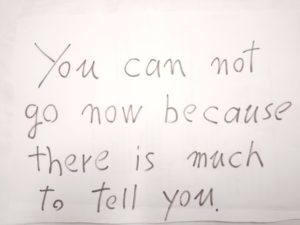 You can not
go now because
there is much
to tell you.